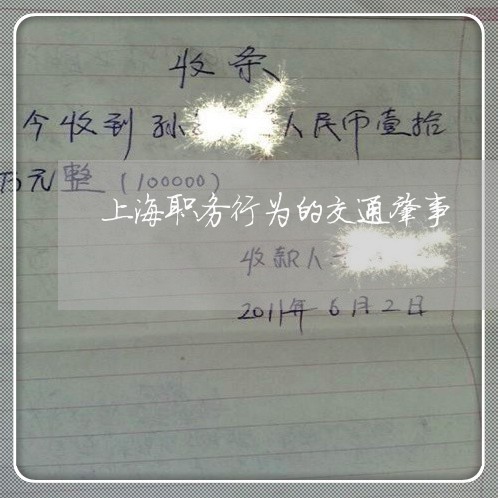 收条
今收到孙 人民币壹拾
万元整(100000)
上海职务行为的交通肇事
收款人
2011年6月2日